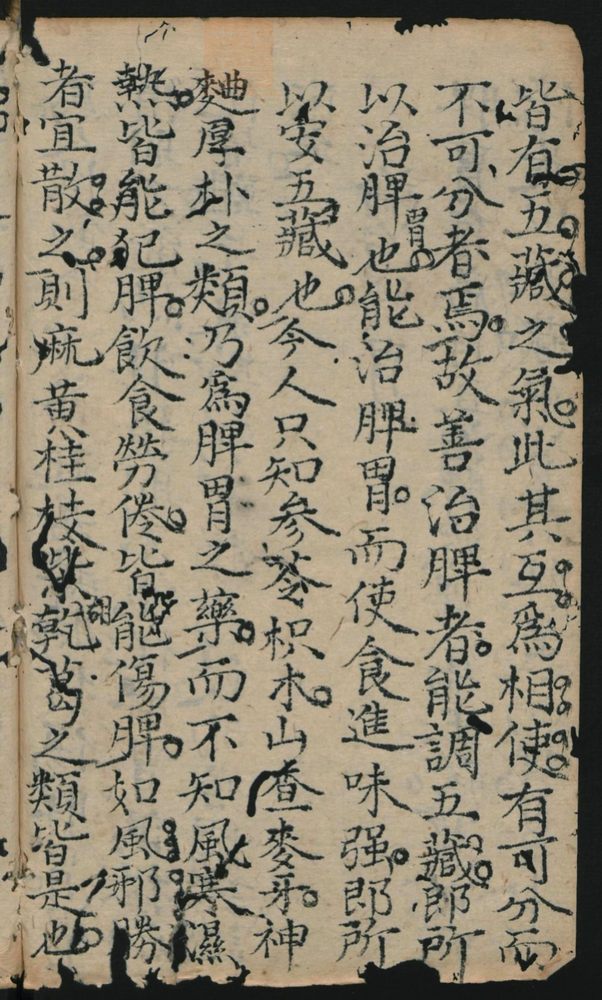 皆有五藏之氣此其互爲相使有可分而
不可分者焉故善治脾者能調五藏郎所
以治脾胃也能治脾胃而使食進味强郎所
以安五藏也今人只知参苓枳朮山查麥牙神
麯厚朴之類乃爲脾胃之藥而不知風寒濕
熱皆能犯脾飲食勞倦皆能傷脾如風邪勝
者宜散之則麻黄桂枝柴胡乾葛之類皆是也